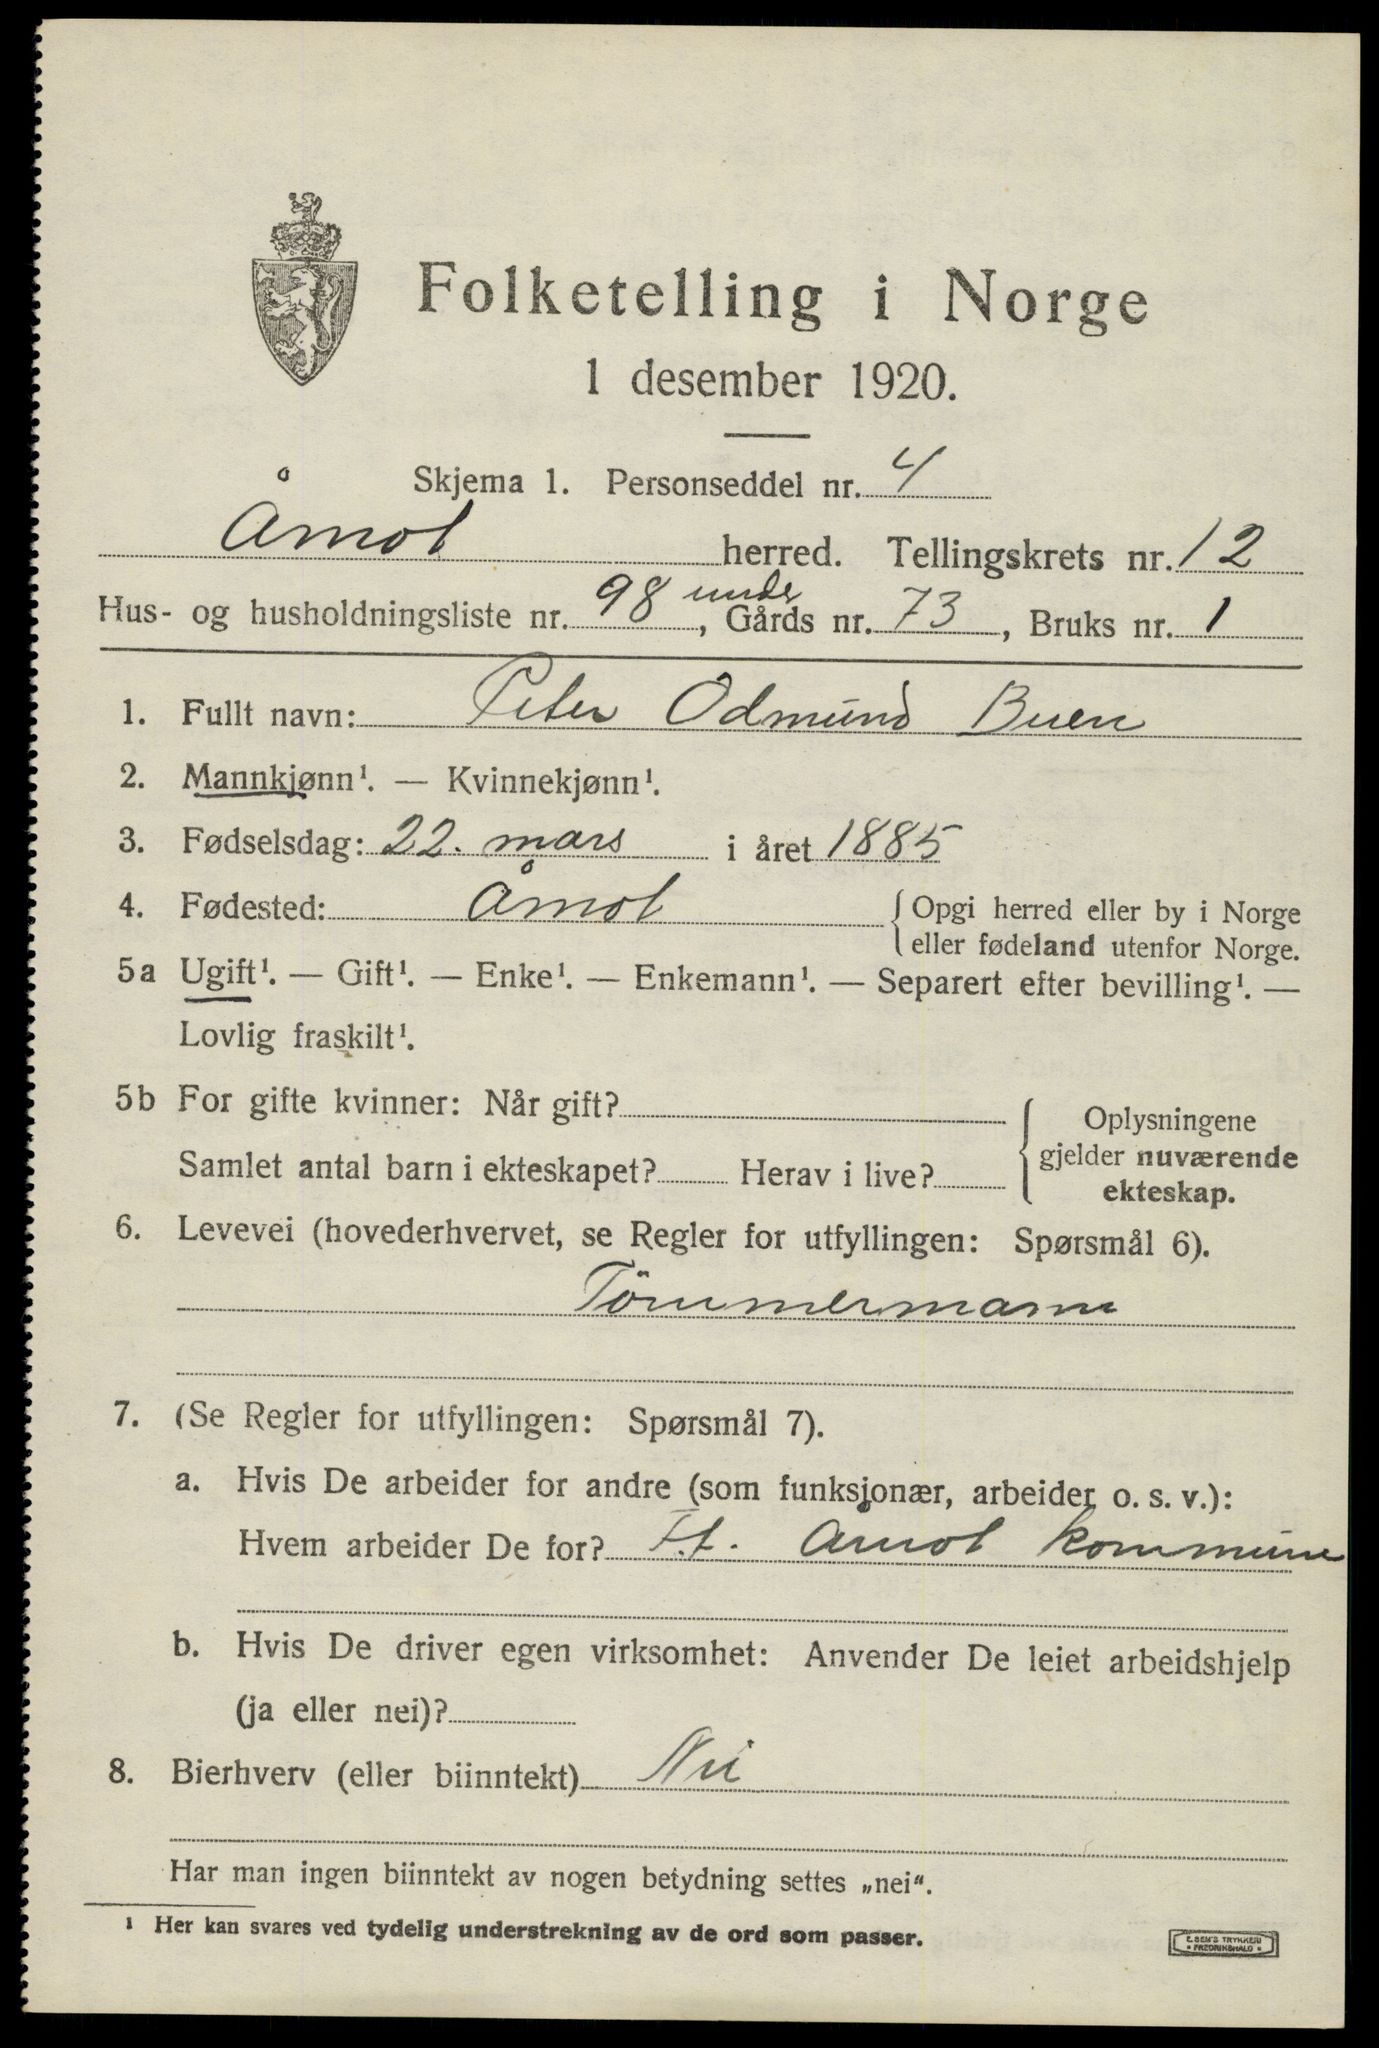 Folketelling i Norge
1 desember 1920.
Skjema 1. Personseddel nr. 4
Åmot herred. Tellingskrets nr. 12
Hus- og husholdningsliste nr. 98 under, Gårds nr. 73, Bruks nr. 1
1. Fullt navn: Peter Odmund Buen
2. Mannkjønn¹. — Kvinnekjønn¹.
3. Fødselsdag: 22. mars i året 1885
4. Fødested: Åmot { Opgi herred eller by i Norge
eller fødeland utenfor Norge.
5a Ugift¹. — Gift¹. — Enke¹. — Enkemann¹. — Separert efter bevilling¹. —
Lovlig fraskilt¹.
5b For gifte kvinner: Når gift? { Oplysningene
gjelder nuværende
ekteskap.
Samlet antal barn i ekteskapet? Herav i live?
6. Levevei (hovederhvervet, se Regler for utfyllingen: Spørsmål 6).
Tömmermann
7. (Se Regler for utfyllingen: Spørsmål 7).
a. Hvis De arbeider for andre (som funksjonær, arbeider o. s. v.):
Hvem arbeider De for? F.t. Åmot kommune
b. Hvis De driver egen virksomhet: Anvender De leiet arbeidshjelp
(ja eller nei)?
8. Bierhverv (eller biinntekt) Nei
Har man ingen biinntekt av nogen betydning settes „nei“.
¹ Her kan svares ved tydelig understrekning av de ord som passer.
E. SEM'S TRYKKERI
• FREDRIKSHALD •